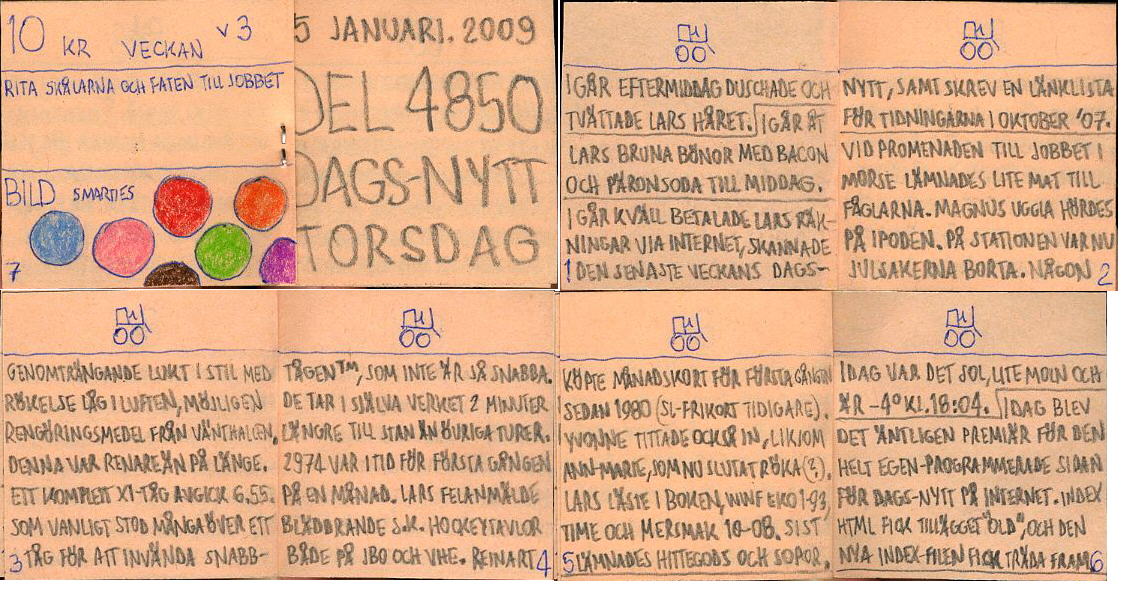 10 KR VECKAN V 3
RITA SKÅLARNA OCH FATEN TILL JOBBET
BILD SMARTIES
7
5 JANUARI. 2009
DEL 4850
DAGS-NYTT
TORSDAG
I GÅR EFTERMIDDAG DUSCHADE OCH
TVÄTTADE LARS HÅRET. I GÅR ÅT
LARS BRUNA BÖNOR MED BACON
OCH PÄRONSODA TILL MIDDAG.
I GÅR KVÄLL BETALADE LARS RÄK-
NINGAR VIA INTERNET, SKANNADE
1 DEN SENASTE VECKANS DAGS-
NYTT, SAMT SKREV EN LÄNKLISTA
FÖR TIDNINGARNA I OKTOBER '07.
VID PROMENADEN TILL JOBBET I
MORSE LÄMNADES LITE MAT TILL
FÅGLARNA. MAGNUS UGGLA HÖRDES
PÅ IPODEN. PÅ STATIONEN VAR NU
JULSAKERNA BORTA. NÅGON 2
GENOMTRÄNGANDE LUKT I STIL MED
RÖKELSE LÅG I LUFTEN, MÖJLIGEN
RENGÖRINGSMEDEL FRÅN VÄNTHALLEN.
DENNA VAR RENARE ÄN PÅ LÄNGE.
ETT KOMPLETT X1-TÅG AVGICK 6.55.
SOM VANLIGT STOD MÅNGA ÖVER ETT
3 TÅG FÖR ATT INVÄNDA SNABB-
TÅGEN™, SOM INTE ÄR SÅ SNABBA.
DE TAR I SJÄLVA VERKET 2 MINUTER
LÄNGRE TILL STAN ÄN ÖVRIGA TURER.
2974 VAR I TID FÖR FÖRSTA GÅNGEN
PÅ EN MÅNAD. LARS FELANMÄLDE
BLÄDDRANDE S.K. HOCKEYTAVLOR
BÅDE PÅ JBO OCH VHE. REINART 4
KÖPTE MÅNADSKORT FÖR FÖRSTA GÅNGEN
SEDAN 1980 (SL-FRIKORT TIDIGARE).
YVONNE TITTADE OCKSÅ IN, LIKSOM
ANN-MARIE, SOM NU SLUTAT RÖKA (?).
LARS LÄSTE I BOKEN, WWF EKO 1-93,
TIME OCH MERSMAK 10-08. SIST
5 LÄMNADES HITTEGODS OCH SOPOR.
I DAG VAR DET SOL, LITE MOLN OCH
ÄR -4° KL. 18:04. I DAG BLEV
DET ÄNTLIGEN PREMIÄR FÖR DEN
HELT EGEN-PROGRAMMERADE SIDAN
FÖR DAGS-NYTT PÅ INTERNET. INDEX
HTML FICK TILLÄGGET "OLD", OCH DEN
NYA INDEX-FILEN FICK TRÄDA FRAM. 6